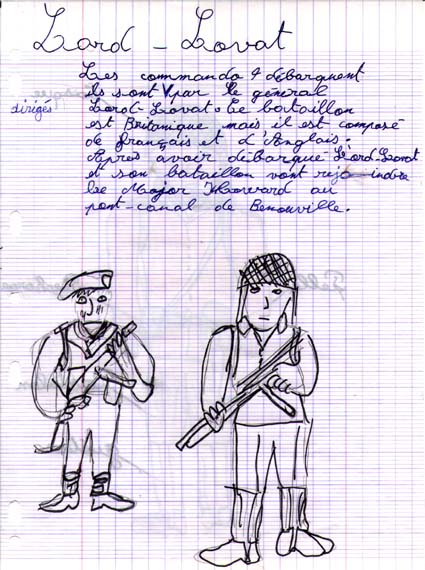 Lord - Lovat
Les commando 4 débarquent
ils sont V par le général
dirigés
Lord-Lovat. Ce bataillon
est Britanique mais il est composé
de français et d'Anglais.
Après avoir débarqué Lord-Lovat
et son bataillon vont rejoindre
le Major Howard au
pont-canal de Benouville.